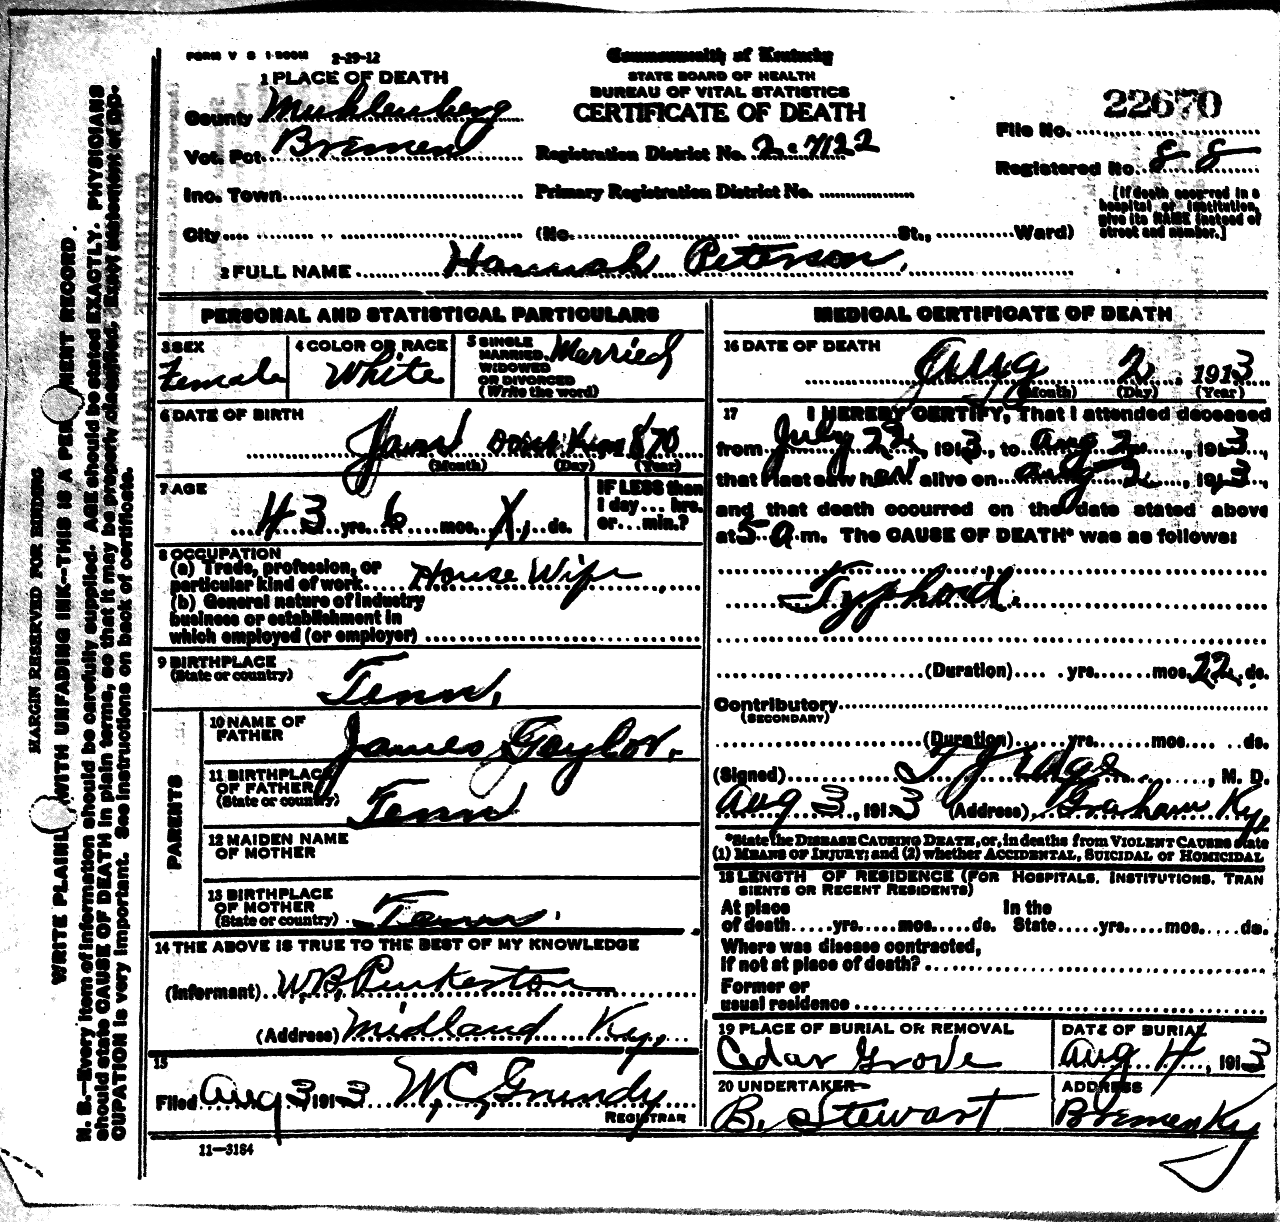 FORM V S 1-500M 2-29-12
Commonwealth of Kentucky
STATE BOARD OF HEALTH
BUREAU OF VITAL STATISTICS
CERTIFICATE OF DEATH
1 PLACE OF DEATH
County Muhlenberg
Vot. Pct. Bremen
Inc. Town
City
Registration District No.
Primary Registration District No.
(No. St., Ward)
22670
File No.
Registered No. 88
[If death occurred in a
hospital or institution,
give its NAME instead of
street and number.]
2 FULL NAME Hannah Peterson.
PERSONAL AND STATISTICAL PARTICULARS
3 SEX
Female
4 COLOR OR RACE
White
5 SINGLE
MARRIED,
WIDOWED
OR DIVORCED
(Write the word)
Married
6 DATE OF BIRTH
Jan dont Know 1870
(Month) (Day) (Year)
7 AGE
43 yrs. 6 mos. X, ds.
IF LESS than
1 day... hrs.
or... min.?
8 OCCUPATION
(a) Trade, profession, or
particular kind of work House Wife
(b) General nature of industry
business or establishment in
which employed (or employer)
9 BIRTHPLACE
(State or country)
Tenn.
PARENTS
10 NAME OF
FATHER
James Gaylor.
11 BIRTHPLACE
OF FATHER
(State or country)
Tenn
12 MAIDEN NAME
OF MOTHER
13 BIRTHPLACE
OF MOTHER
(State or country)
Tenn.
14 THE ABOVE IS TRUE TO THE BEST OF MY KNOWLEDGE
(Informant) W.B. Pinkerton
(Address) Midland Ky,
15
Filed Aug 3 1913 W,C, Grundy
REGISTRAR
11—3184
MEDICAL CERTIFICATE OF DEATH
16 DATE OF DEATH
Aug 2, 1913
(Month) (Day) (Year)
17 I HEREBY CERTIFY, That I attended deceased
from July 22, 1913, to Aug 2, 1913,
that I last saw her alive on Aug 2, 1913,
and that death occurred on the date stated above
at 5 a m. The CAUSE OF DEATH* was as follows:
Typhoid.
(Duration) yrs. mos. 22 ds.
Contributory
(SECONDARY)
(Duration) yrs. mos. ds.
(Signed) , M. D.
Aug 3, 1913 (Address) Graham Ky,
*State the DISEASE CAUSING DEATH, or, in deaths from VIOLENT CAUSES state
(1) MEANS OF INJURY; and (2) whether ACCIDENTAL, SUICIDAL or HOMICIDAL
18 LENGTH OF RESIDENCE (FOR HOSPITALS, INSTITUTIONS, TRAN
SIENTS OR RECENT RESIDENTS)
At place In the
of death yrs. mos. ds. State yrs. mos. ds.
Where was disease contracted,
if not at place of death?
Former or
usual residence
19 PLACE OF BURIAL OR REMOVAL
Cedar Grove
DATE OF BURIAL
Aug 4, 1913
20 UNDERTAKER
B. Stewart
ADDRESS
Bremen Ky
MARGIN RESERVED FOR BINDING
WRITE PLAINLY WITH UNFADING INK—THIS IS A PERMANENT RECORD.
N. B.—Every item of information should be carefully supplied. AGE should be stated EXACTLY. PHYSICIANS
should state CAUSE OF DEATH in plain terms, so that it may be properly classified. Exact statement of OC-
CUPATION is very important. See instructions on back of certificate.